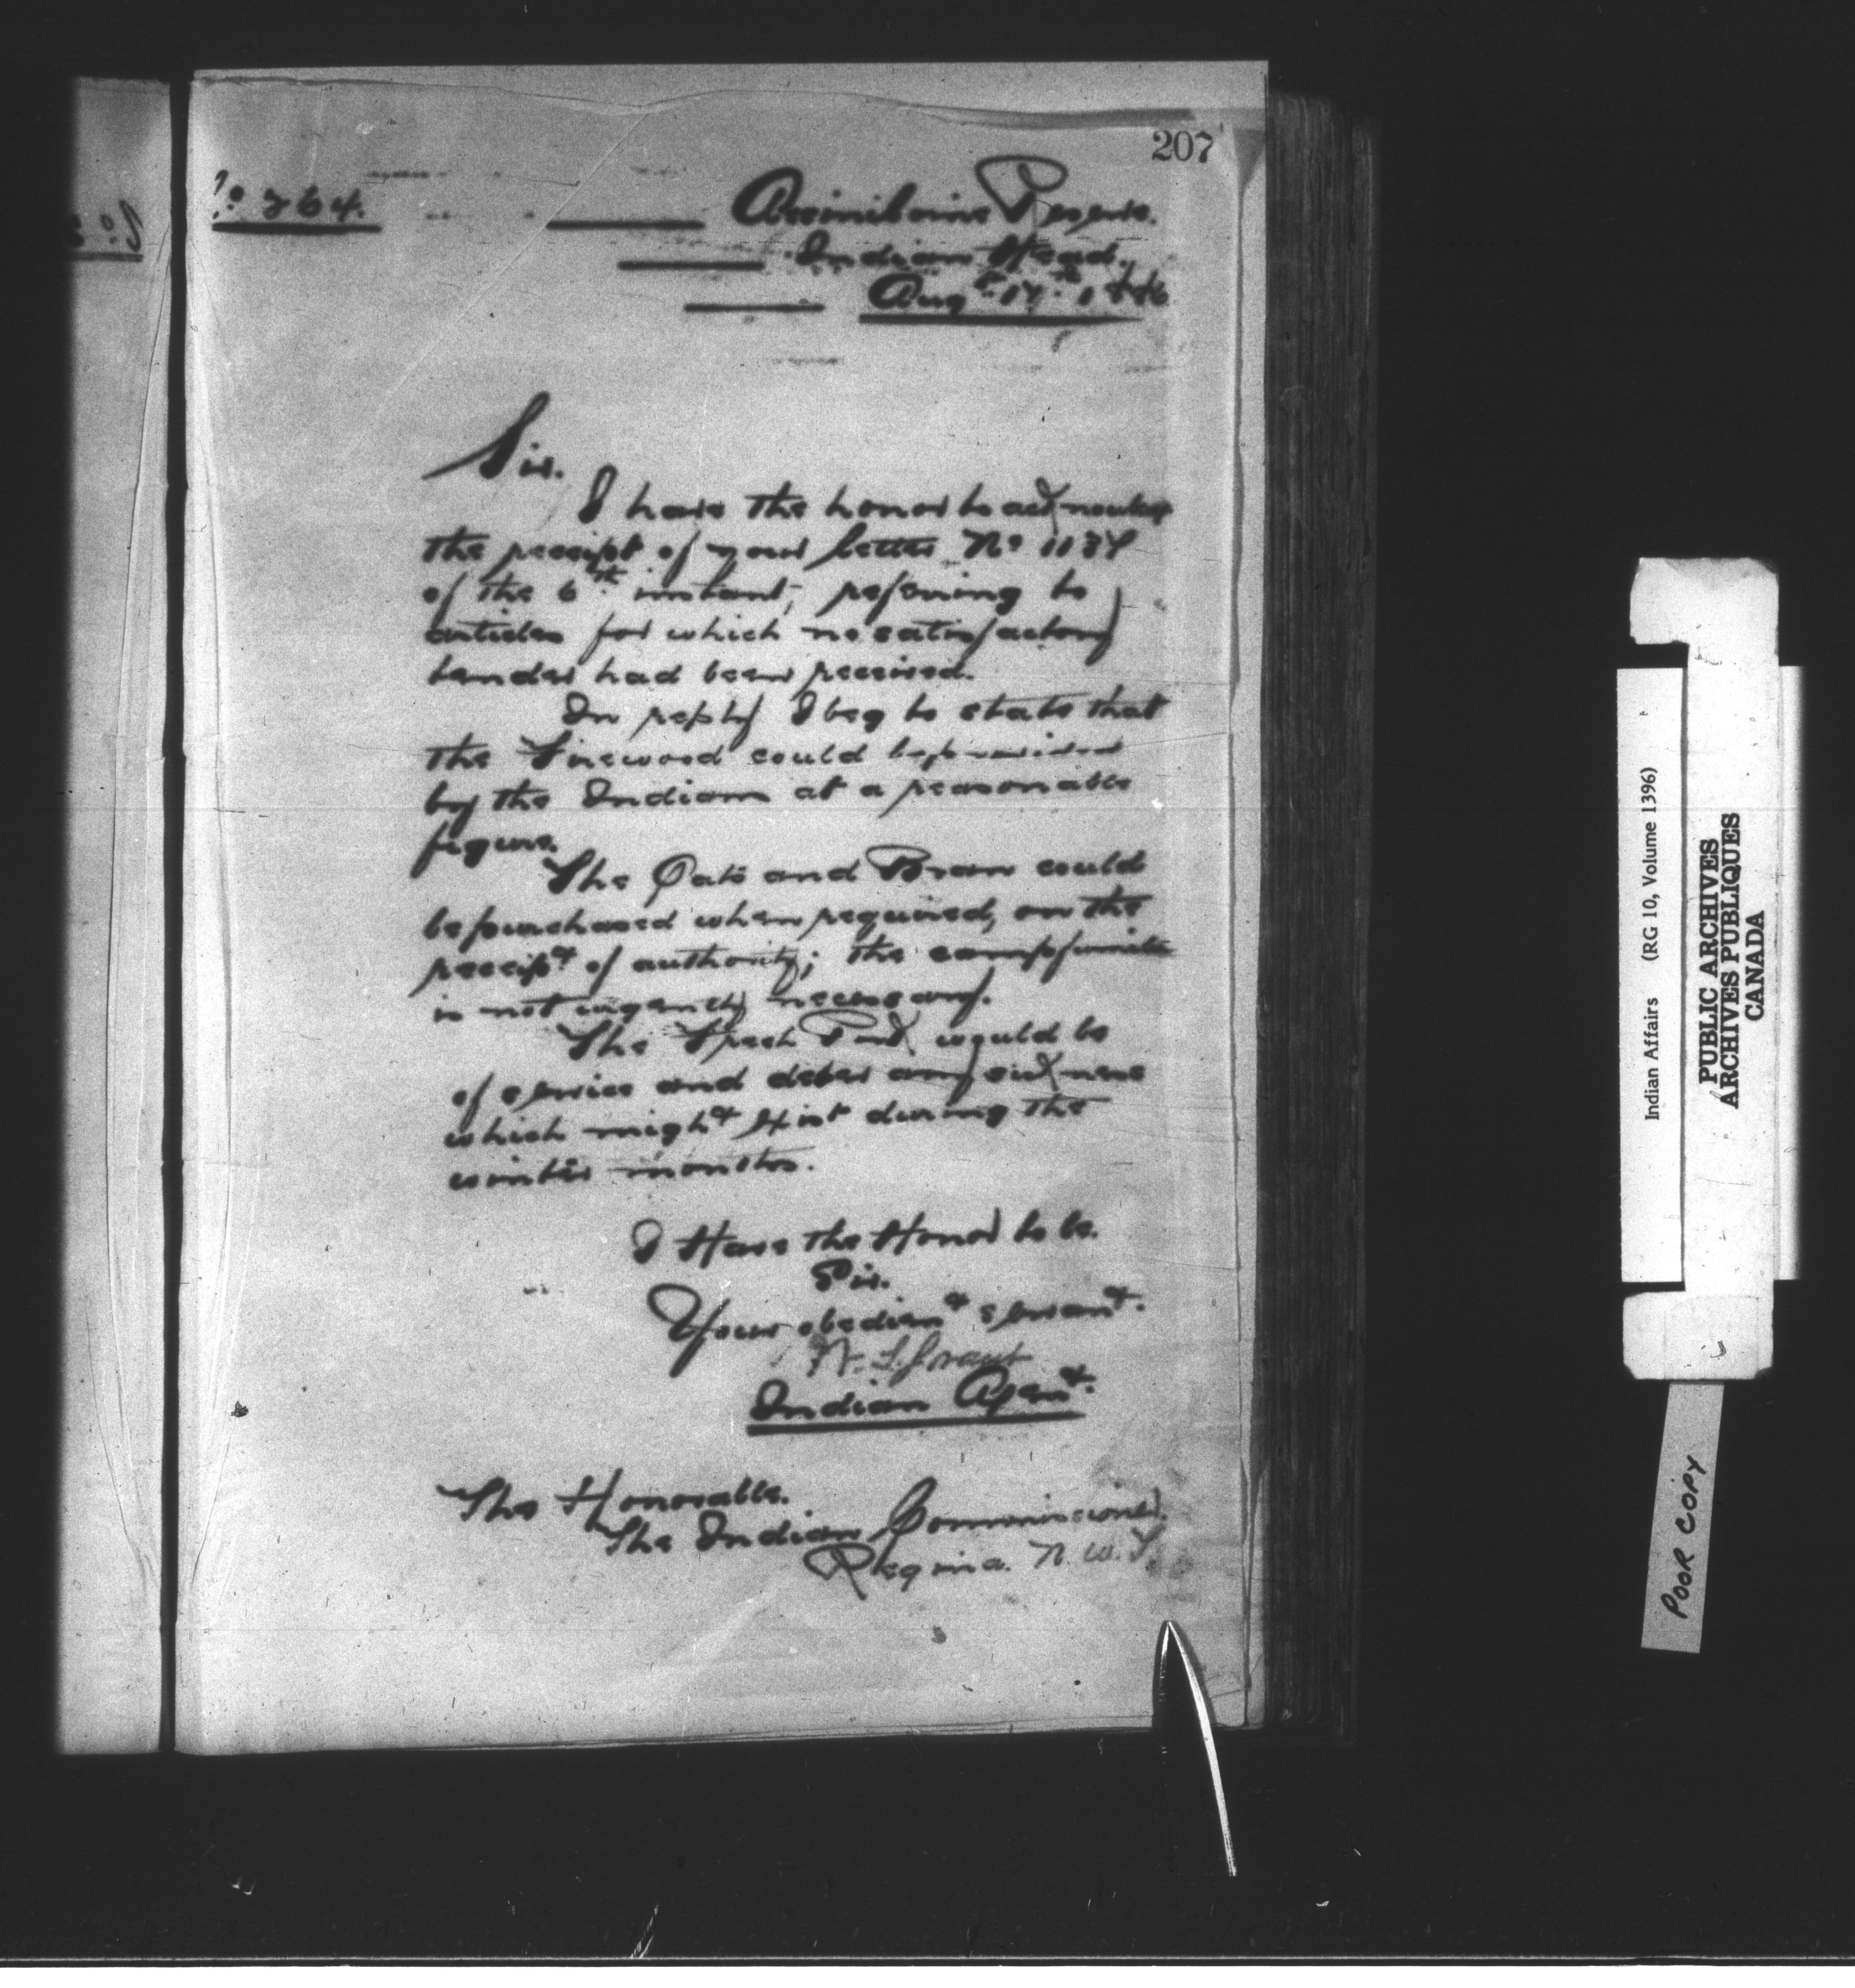 207
No 364.
Assiniboine Reserve.
Indian Head.
Augt. 17th 1886
Sir.
I have the honor to acknowledge
the receipt of your letter No 1137
of the 6th instant, referring to
articles for which no satisfactory
tender had been received.
In reply I beg to state that
the Firewood could be provided
by the Indians at a reasonable
figure.
The Oats and Bran could
be purchased when required, on the
receipt of authority; the
is not urgently necessary.
The Fresh Pork would be
of service and deter any sickness
which might exist during the
winter months.
I Have the Honor to be.
Sir.
Your obedient servant.
W. S. Grant
Indian Agent.
The Honorable.
The Indian Commissioner.
Regina. N.W.T.
Indian Affairs (RG 10, Volume 1396)
PUBLIC ARCHIVES
ARCHIVES PUBLIQUES
CANADA
POOR COPY